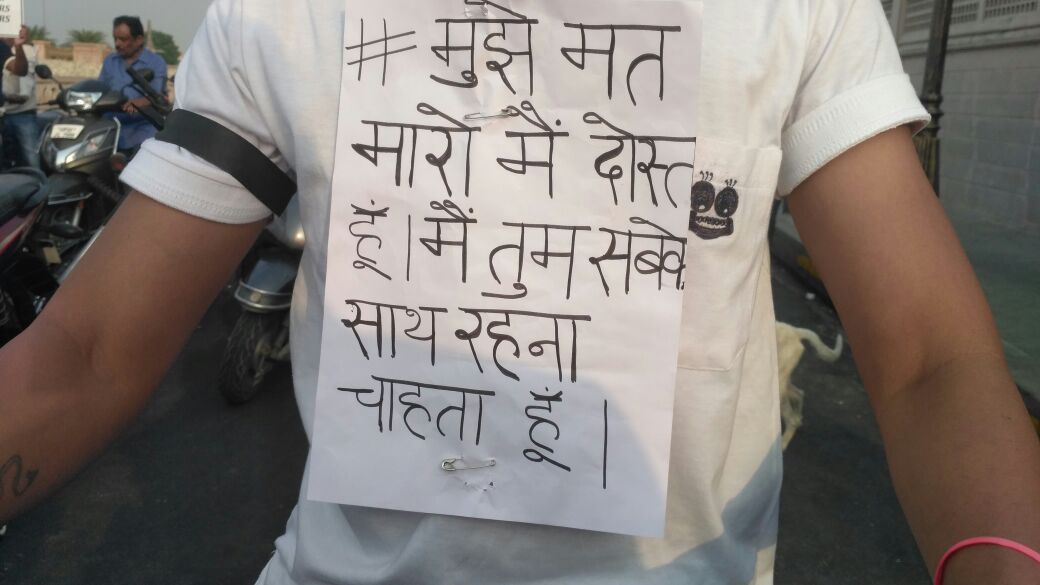 RS
RS
# मुझे मत
मारो मैं दोस्त
हूँ। मैं तुम सबके
साथ रहना
चाहता हूँ।